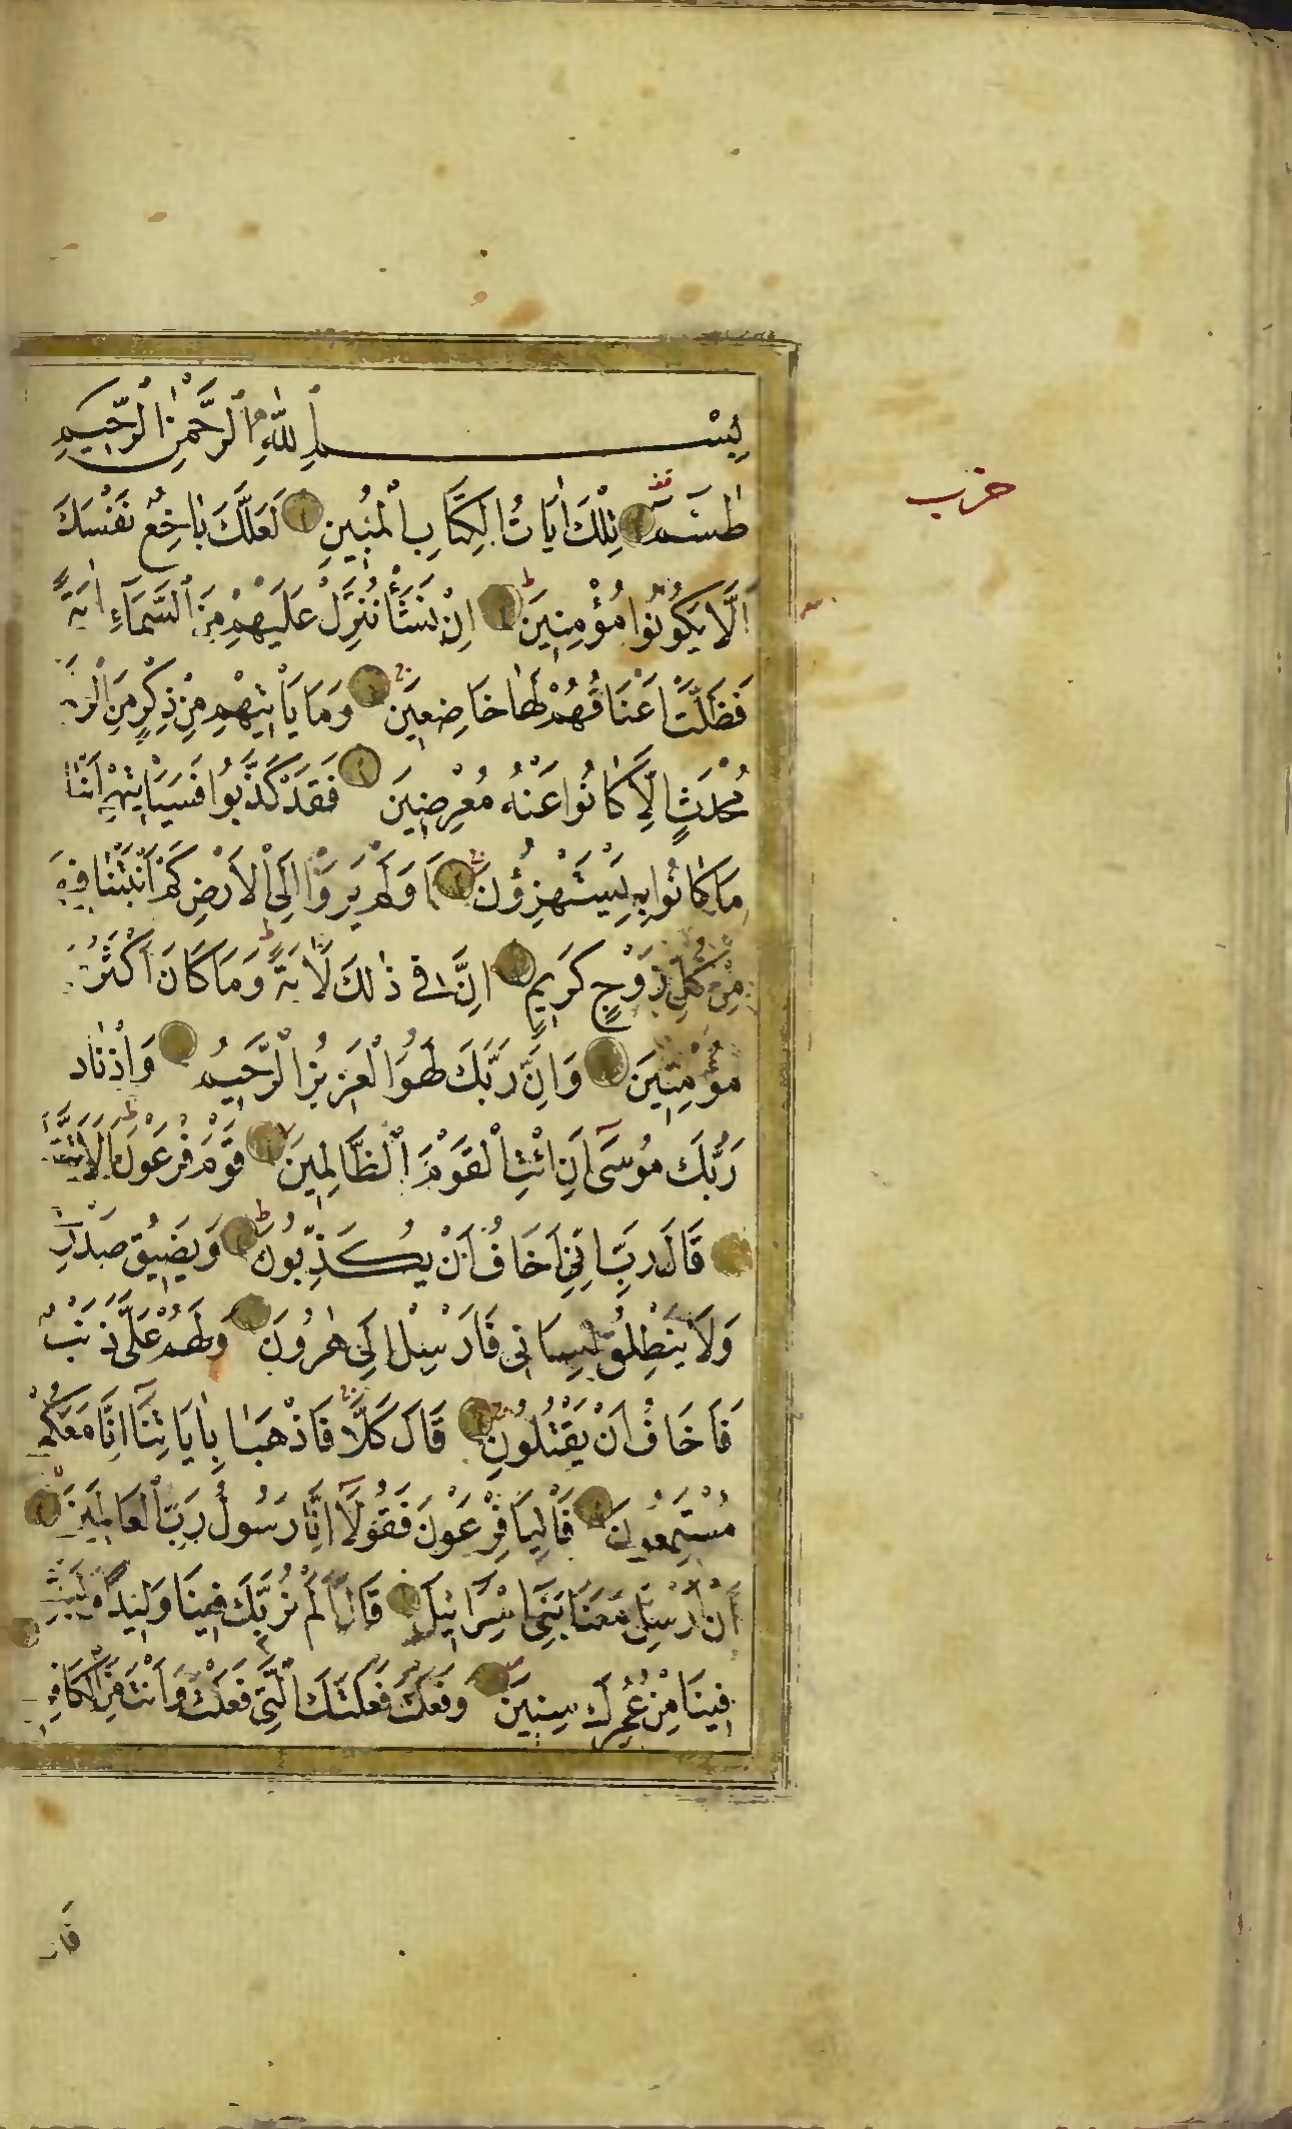 بِسْمِ اللّٰهِ الرَّحْمٰنِ الرَّحِيمِ
طٰسٓمٓ تِلْكَ اٰيَاتُ الْكِتَابِ الْمُبِينِ لَعَلَّكَ بَاخِعٌ نَفْسَكَ
حزب
اَلَّا يَكُونُوا مُؤْمِنِينَ اِنْ نَشَأْ نُنَزِّلْ عَلَيْهِمْ مِنَ السَّمَآءِ اٰيَةً
فَظَلَّتْ اَعْنَاقُهُمْ لَهَا خَاضِعِينَ وَمَا يَأْتِيهِمْ مِنْ ذِكْرٍ مِنَ
مُحْدَثٍ اِلَّا كَانُوا عَنْهُ مُعْرِضِينَ فَقَدْ كَذَّبُوا فَسَيَأْتِيهِمْ
مَا كَانُوا بِهِ يَسْتَهْزِؤُنَ اَوَلَمْ يَرَوْا اِلَى الْاَرْضِ كَمْ اَنْبَتْنَا فِيهَا
مِنْ كُلِّ زَوْجٍ كَرِيمٍ اِنَّ فِي ذٰلِكَ لَاٰيَةً وَمَا كَانَ
مُؤْمِنِينَ وَاِنَّ رَبَّكَ لَهُوَ الْعَزِيزُ الرَّحِيمُ وَاِذْ نَادٰى
رَبُّكَ مُوسٰٓى اَنِ ائْتِ الْقَوْمَ الظَّالِمِينَ قَوْمَ فِرْعَوْنَ اَلَا
قَالَ رَبِّ اِنِّي اَخَافُ اَنْ يُكَذِّبُونِ وَيَضِيقُ صَدْرِي
وَلَا يَنْطَلِقُ لِسَانِي فَاَرْسِلْ اِلٰى هٰرُونَ وَلَهُمْ عَلَيَّ ذَنْبٌ
فَاَخَافُ اَنْ يَقْتُلُونِ قَالَ كَلَّا فَاذْهَبَا بِاٰيَاتِنَآ اِنَّا مَعَكُمْ
مُسْتَمِعُونَ فَأْتِيَا فِرْعَوْنَ فَقُولَآ اِنَّا رَسُولُ رَبِّ الْعَالَمِينَ
اَنْ اَرْسِلْ مَعَنَا بَنِٓي اِسْرَآئِيلَ قَالَ اَلَمْ نُرَبِّكَ فِينَا وَلِيدًا وَلَبِثْتَ
فِينَا مِنْ عُمُرِكَ سِنِينَ وَفَعَلْتَ فَعْلَتَكَ الَّتِي فَعَلْتَ وَاَنْتَ مِنَ الْكَافِرِينَ